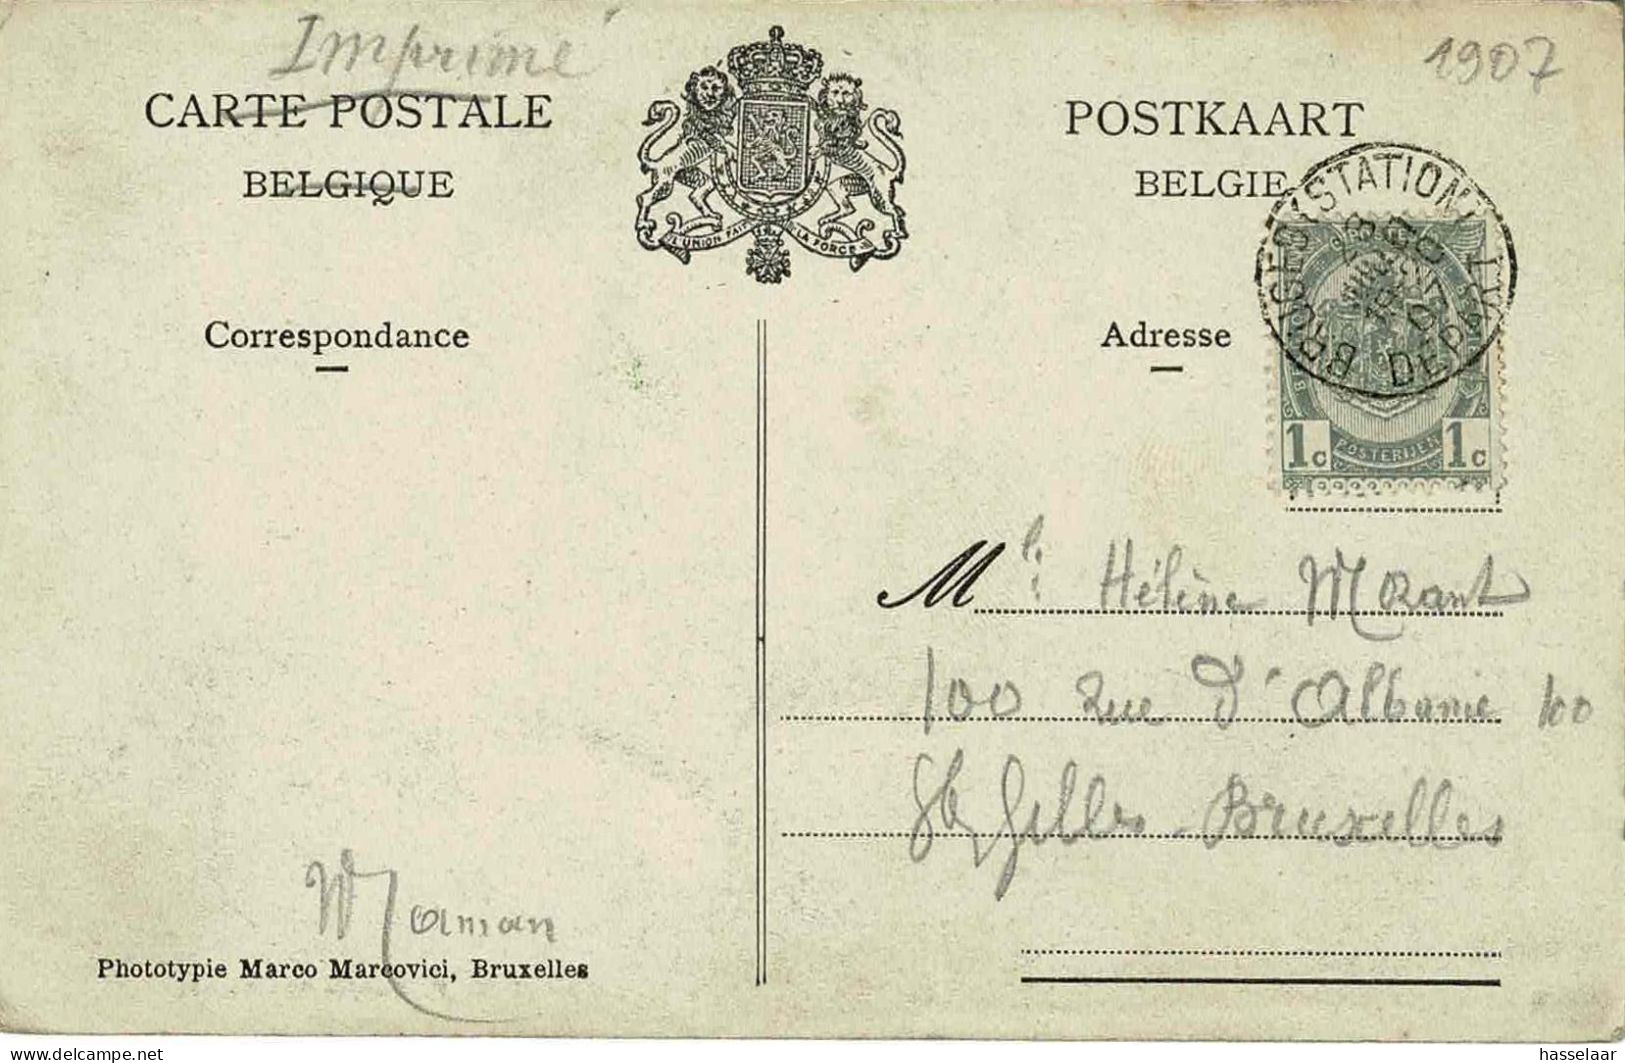 Imprimé
1907
CARTE POSTALE
POSTKAART
BELGIQUE
BELGIE
L'UNION FAIT LA FORCE
STATION
DEPART
Correspondance
Adresse
1c POSTERIJEN 1c
Mlle Hélène Morant
100 Rue d'Albanie 100
St Gilles - Bruxelles
Maman
Phototypie Marco Marcovici, Bruxelles
delcampe.net
hasselaar